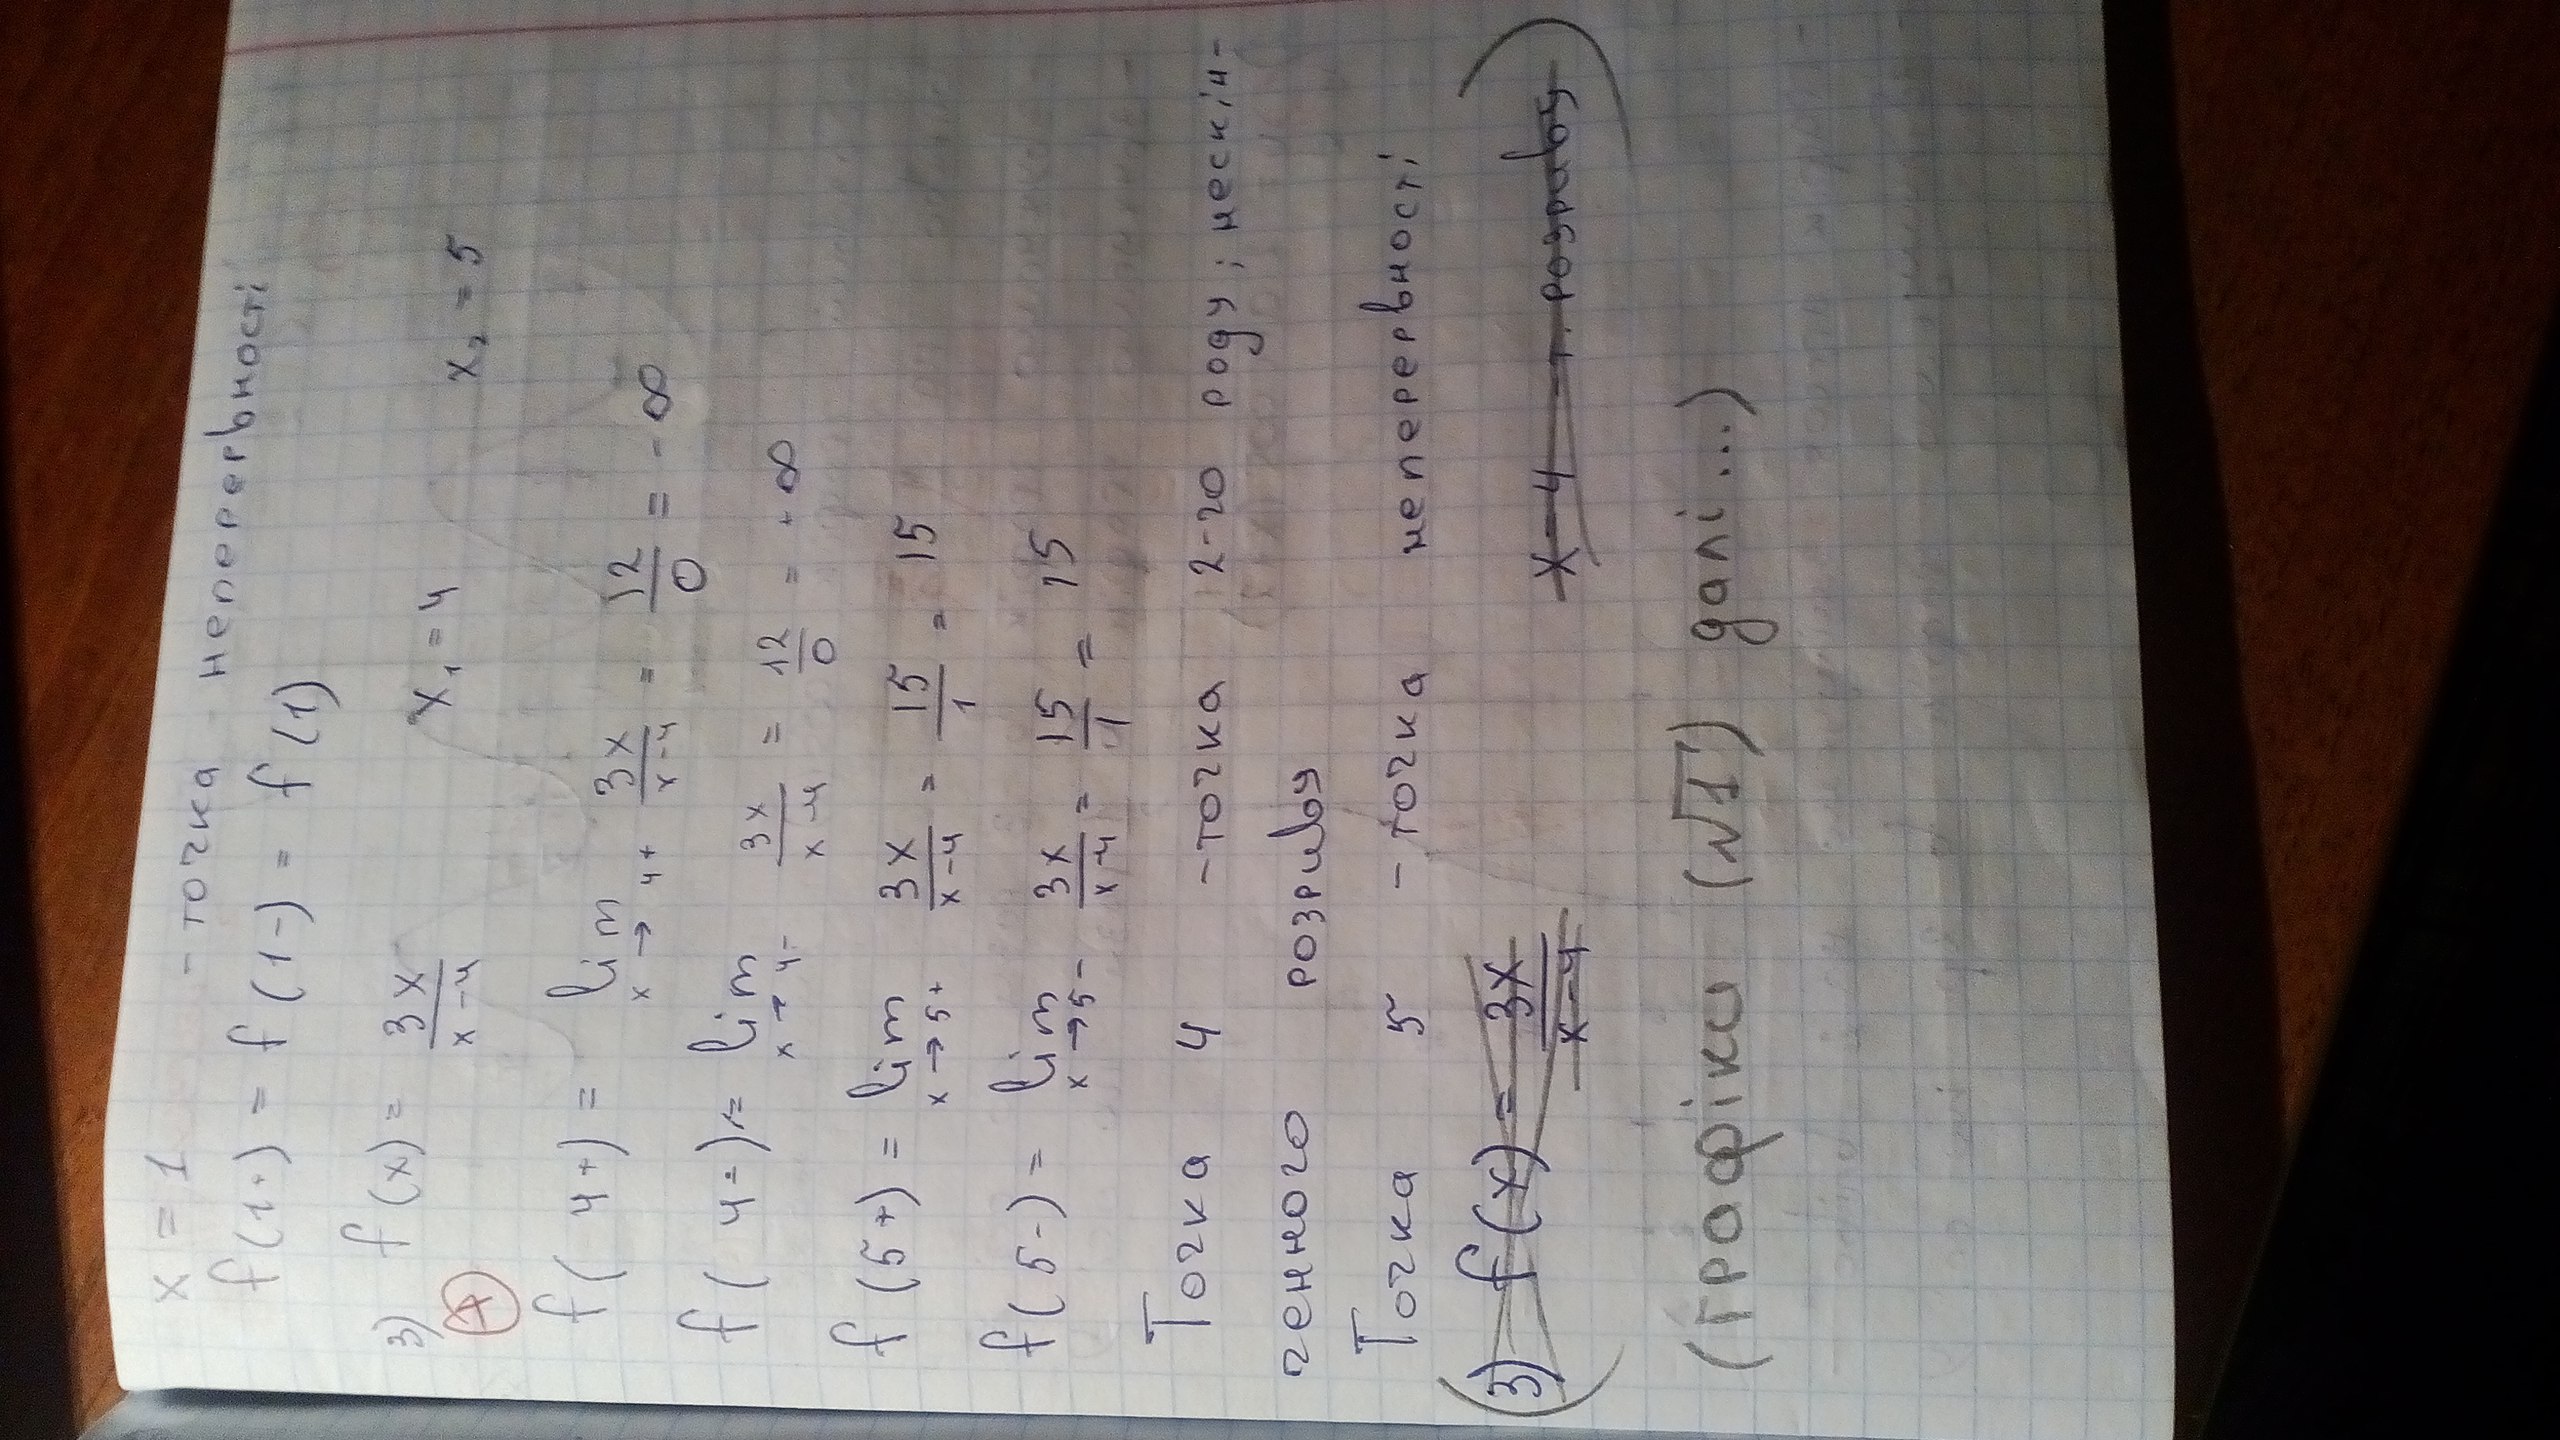 x = 1 - точка неперервності
f(1+) = f(1-) = f(1)
3) f(x) = 3x/(x-4) x₁ = 4 x₂ = 5
+
f(4+) = lim x→4+ 3x/(x-4) = 12/0 = -∞
f(4-) = lim x→4- 3x/(x-4) = 12/0 = +∞
f(5+) = lim x→5+ 3x/(x-4) = 15/1 = 15
f(5-) = lim x→5- 3x/(x-4) = 15/1 = 15
Точка 4 - точка 2-го роду; нескін-
ченного розриву
Точка 5 - точка неперервності
(3) f(x) = 3x/(x-4) x=4 -т. розриву)
(графіки (√1) далі...)